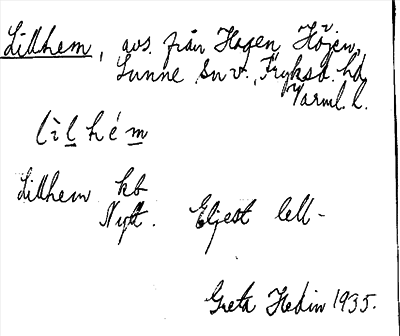 Lillhem, avs. från Hagen, Höjen,
Sunne sn v., Fryksd. hd,
Värml. l.
lìlhém
Lillhem kb
Nytt. Eljest lill-
Greta Hedin 1935.